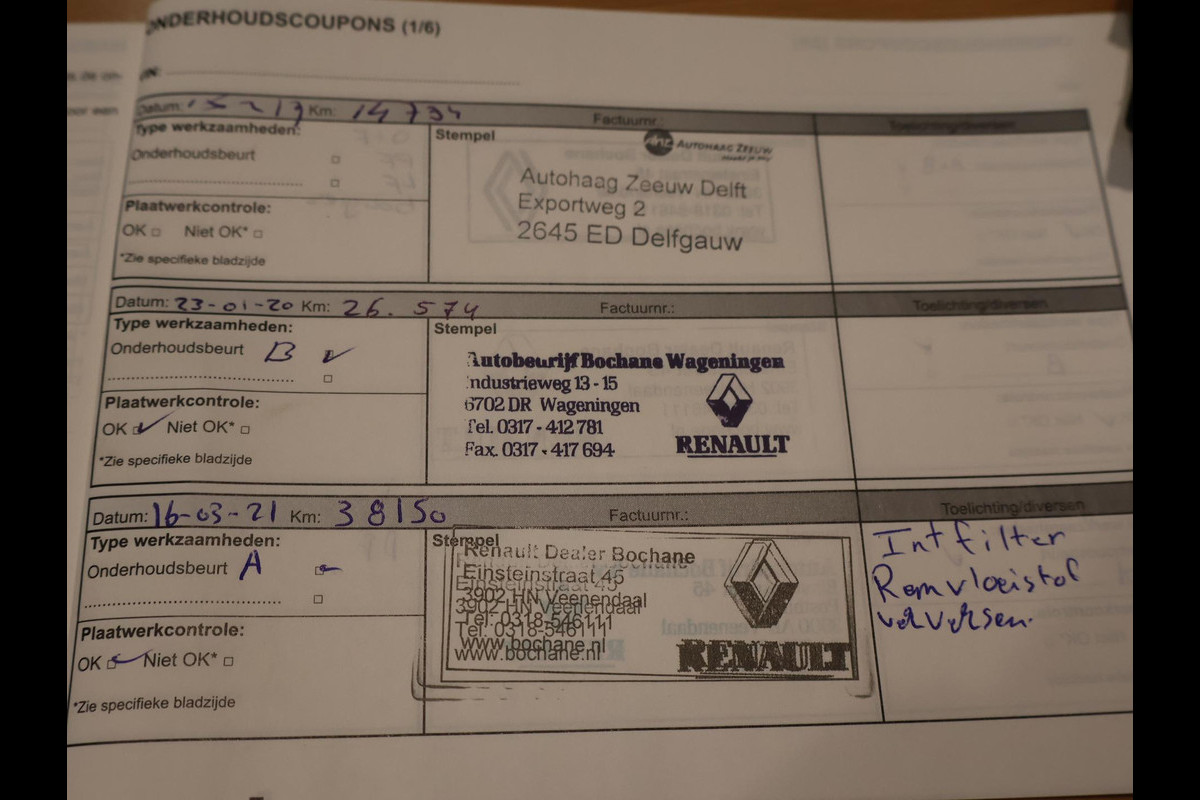 ONDERHOUDSCOUPONS (1/6)
Datum: Km: 14734 Factuurnr.: Toelichting/diversen
Type werkzaamheden:
Onderhoudsbeurt
Plaatwerkcontrole:
OK Niet OK*
*Zie specifieke bladzijde
Stempel
AUTOHAAG ZEEUW
Autohaag Zeeuw Delft
Exportweg 2
2645 ED Delfgauw
Datum: 23-01-20 Km: 26.574 Factuurnr.: Toelichting/diversen
Type werkzaamheden:
Onderhoudsbeurt B
Plaatwerkcontrole:
OK Niet OK*
*Zie specifieke bladzijde
Stempel
Autobedrijf Bochane Wageningen
Industrieweg 13 - 15
6702 DR Wageningen
Tel. 0317 - 412 781
Fax. 0317 - 417 694
RENAULT
Datum: 16-03-21 Km: 38150 Factuurnr.: Toelichting/diversen
Type werkzaamheden:
Onderhoudsbeurt A
Plaatwerkcontrole:
OK Niet OK*
*Zie specifieke bladzijde
Stempel
Renault Dealer Bochane
Einsteinstraat 45
3902 HN Veenendaal
Tel: 0318-546111
www.bochane.nl
RENAULT
Int filter
Remvloeistof
verversen.